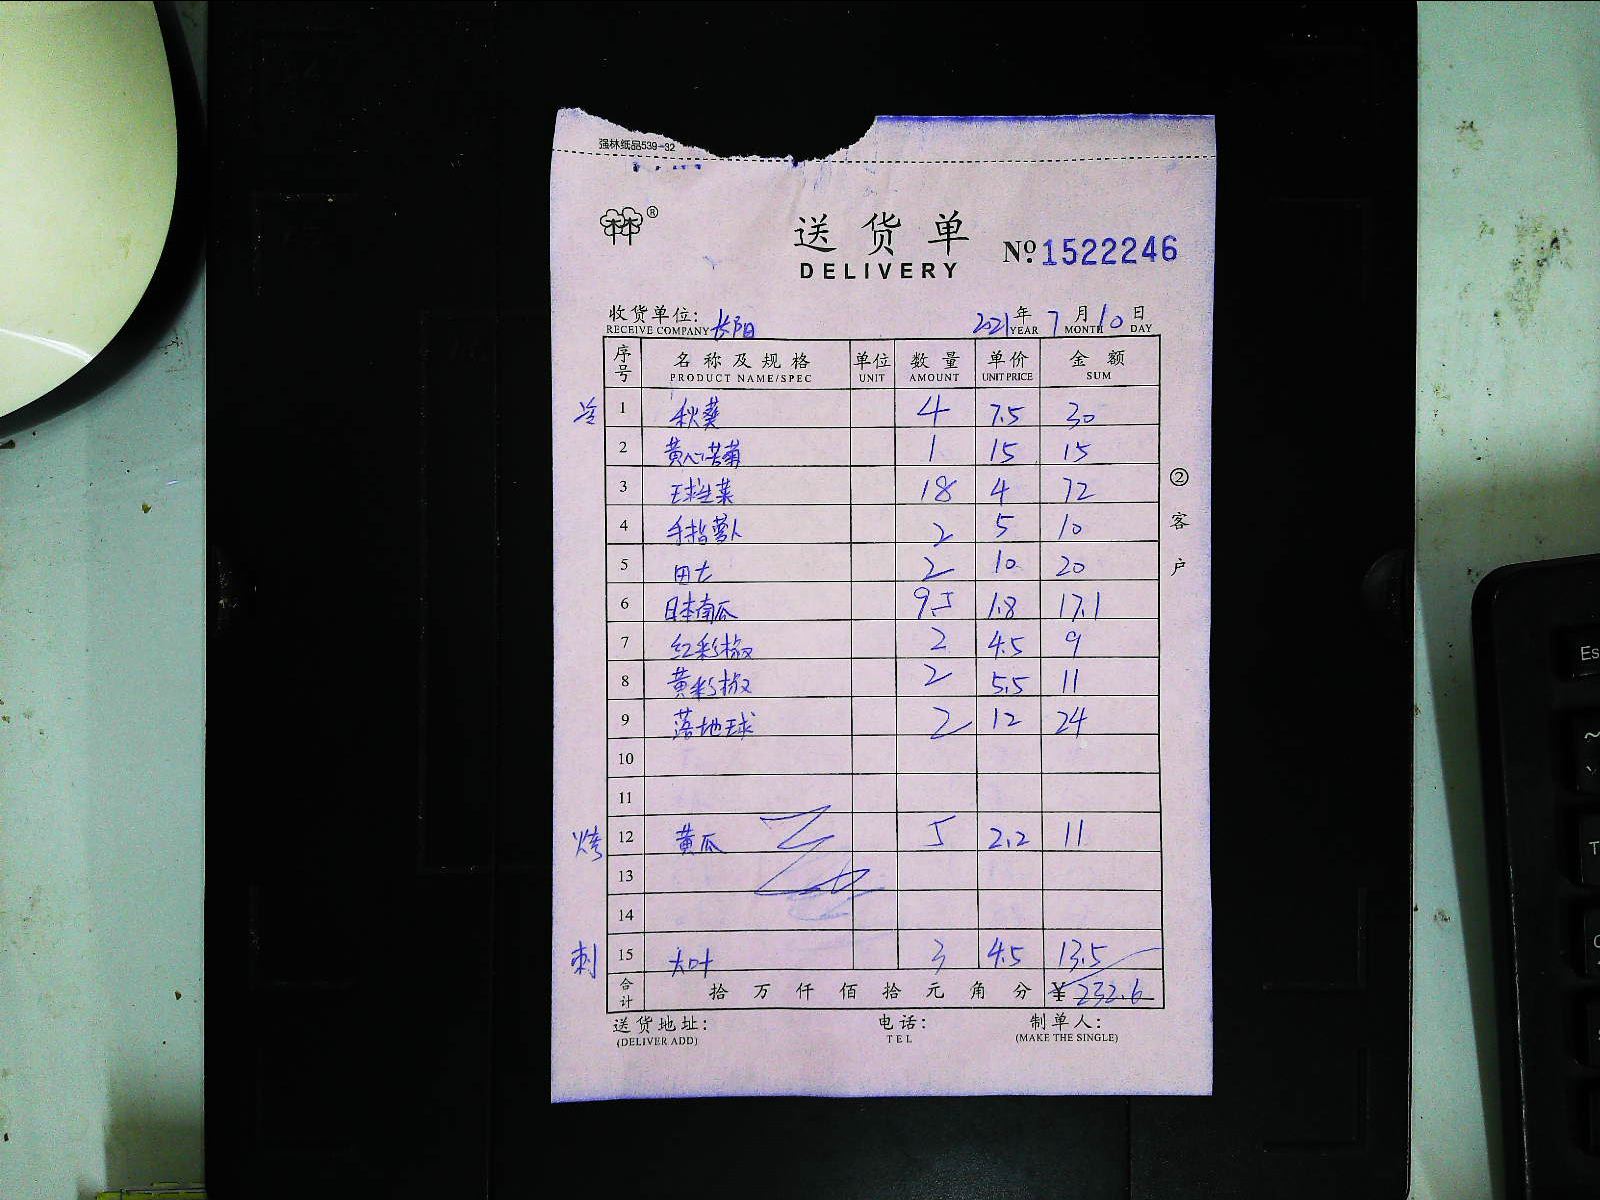 强林纸品539-32
®
送货单
DELIVERY
№ 1522246
收货单位: 长阳 2021年 7月 10日
RECEIVE COMPANY YEAR MONTH DAY
序号 名称及规格 单位 数量 单价 金额
PRODUCT NAME/SPEC UNIT AMOUNT UNIT PRICE SUM
冷 1 秋葵 4 7.5 30
2 黄心苦菊 1 15 15
3 球生菜 18 4 72
4 手指萝卜 2 5 10
5 田七 2 10 20
6 日本南瓜 9.5 1.8 17.1
7 红彩椒 2 4.5 9
8 黄彩椒 2 5.5 11
9 落地球 2 12 24
10
11
烤 12 黄瓜 5 2.2 11
13
14
刺 15 大叶 3 4.5 13.5
合计 拾万仟佰拾元角分 ¥ 232.6
②客户
送货地址: 电话: 制单人:
(DELIVER ADD) TEL (MAKE THE SINGLE)
Es